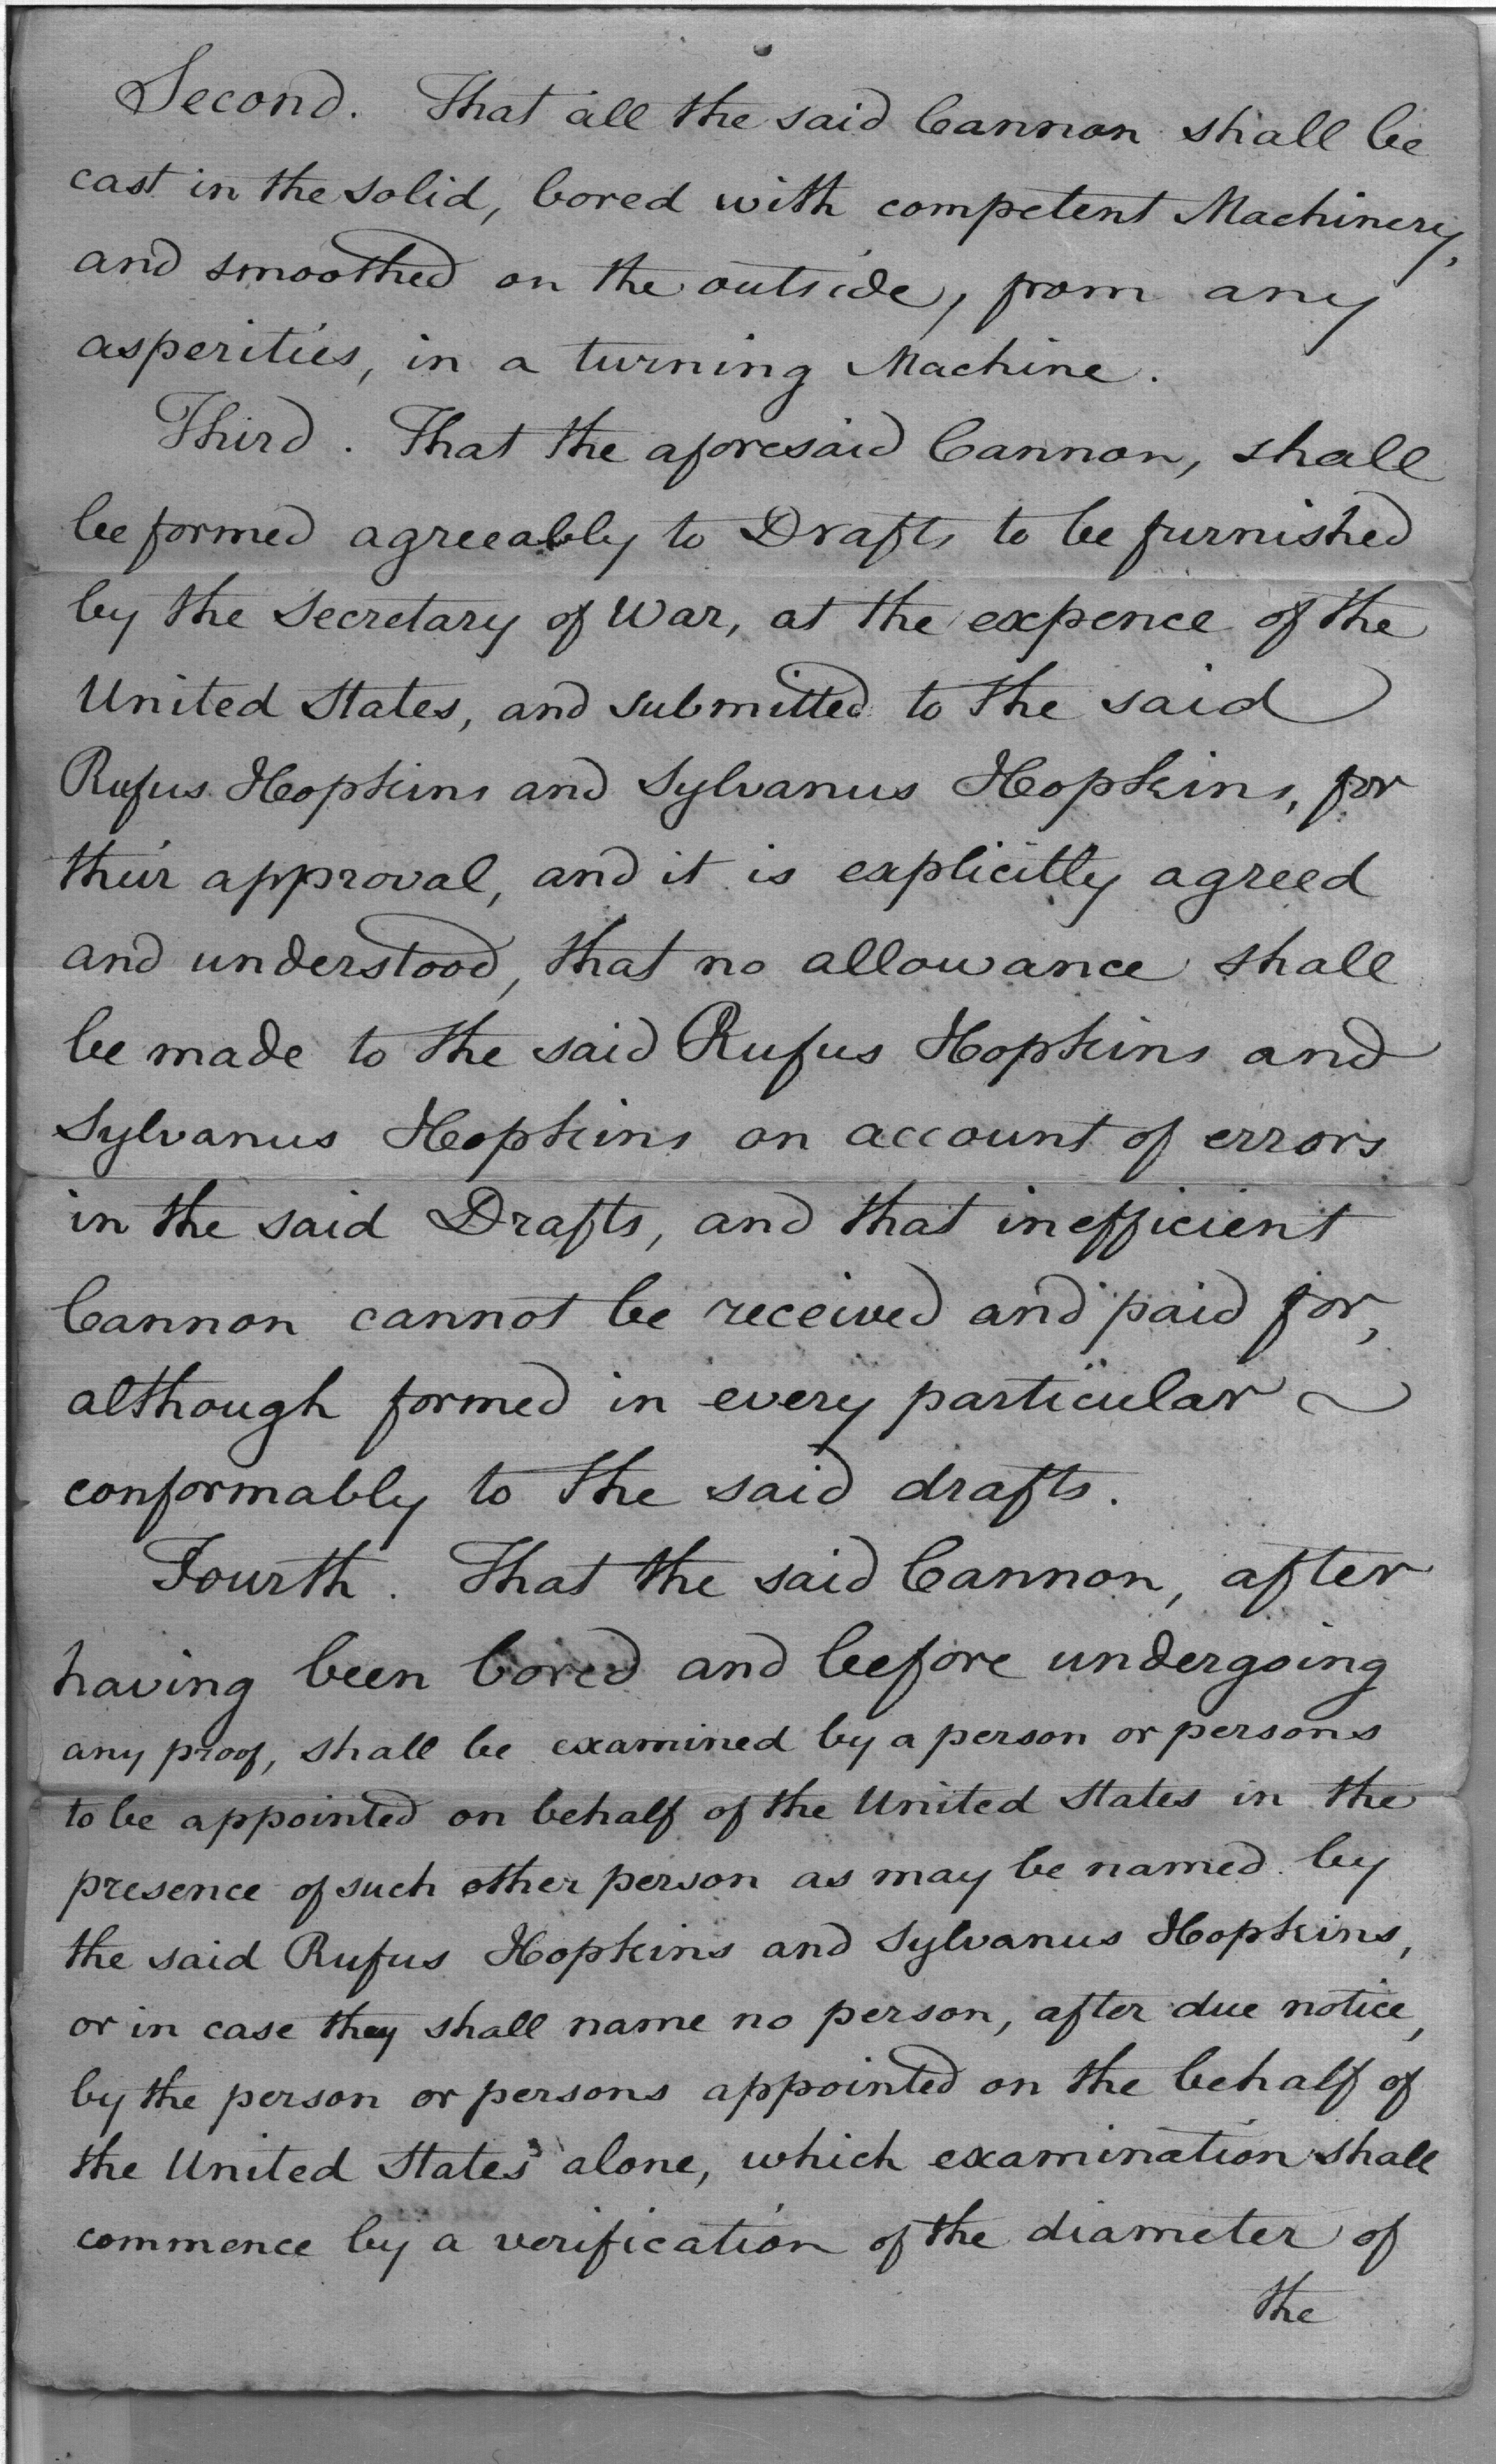 Second. That all the said Cannon shall be
cast in the solid, bored with competent Machinery,
and smoothed on the outside, from any
asperities, in a turning Machine.
Third. That the aforesaid Cannon, shall
be formed agreeably to Drafts to be furnished
by the Secretary of War, at the expence of the
United States, and submitted to the said
Rufus Hopkins and Sylvanus Hopkins, for
their approval, and it is explicitly agreed
and understood, that no allowance shall
be made to the said Rufus Hopkins and
Sylvanus Hopkins on account of errors
in the said Drafts, and that inefficient
Cannon cannot be received and paid for,
although formed in every particular
conformably to the said drafts.
Fourth. That the said Cannon, after
having been bored and before undergoing
any proof, shall be examined by a person or persons
to be appointed on behalf of the United States in the
presence of such other person as may be named by
the said Rufus Hopkins and Sylvanus Hopkins,
or in case they shall name no person, after due notice,
by the person or persons appointed on the behalf of
the United States alone, which examination shall
commence by a verification of the diameter of
the